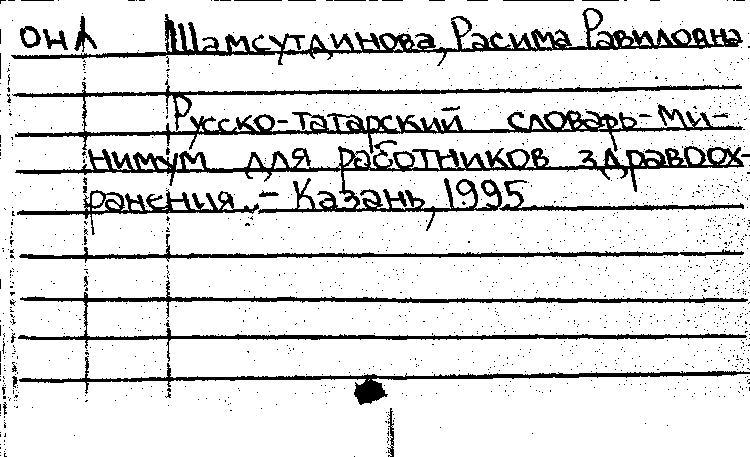 ОНЛ Шамсутдинова, Расима Равиловна
Русско-татарский словарь-ми-
нимум для работников здравоох-
ранения. - Казань, 1995.